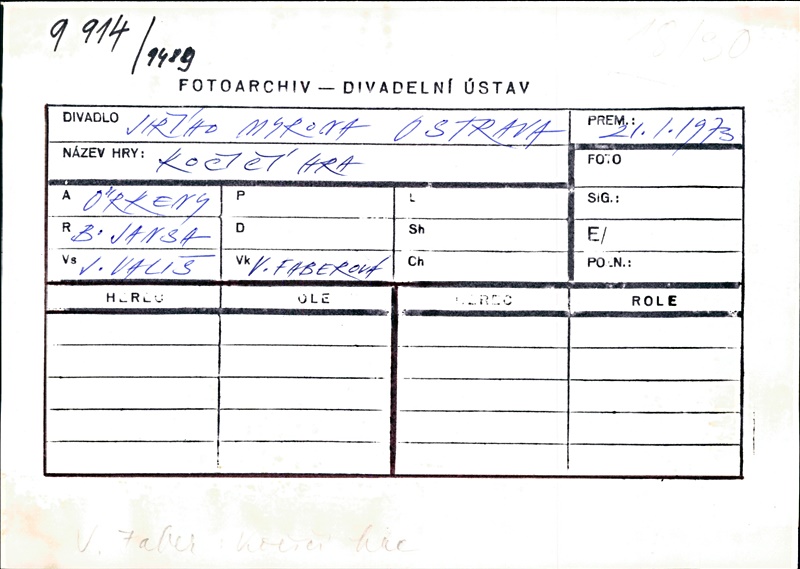 9 914/9489
FOTOARCHIV — DIVADELNÍ ÚSTAV
DIVADLO JIŘÍHO MYRONA OSTRAVA PREM.: 21.1.1973
NÁZEV HRY: KOČIČÍ HRA FOTO
A ÖRKENY P L SIG.:
R B. JANSA D Sh E/
Vs J. VALIŠ Vk V. FABEROVÁ Ch POZN.:
HEREC ROLE HEREC ROLE
V. Faber